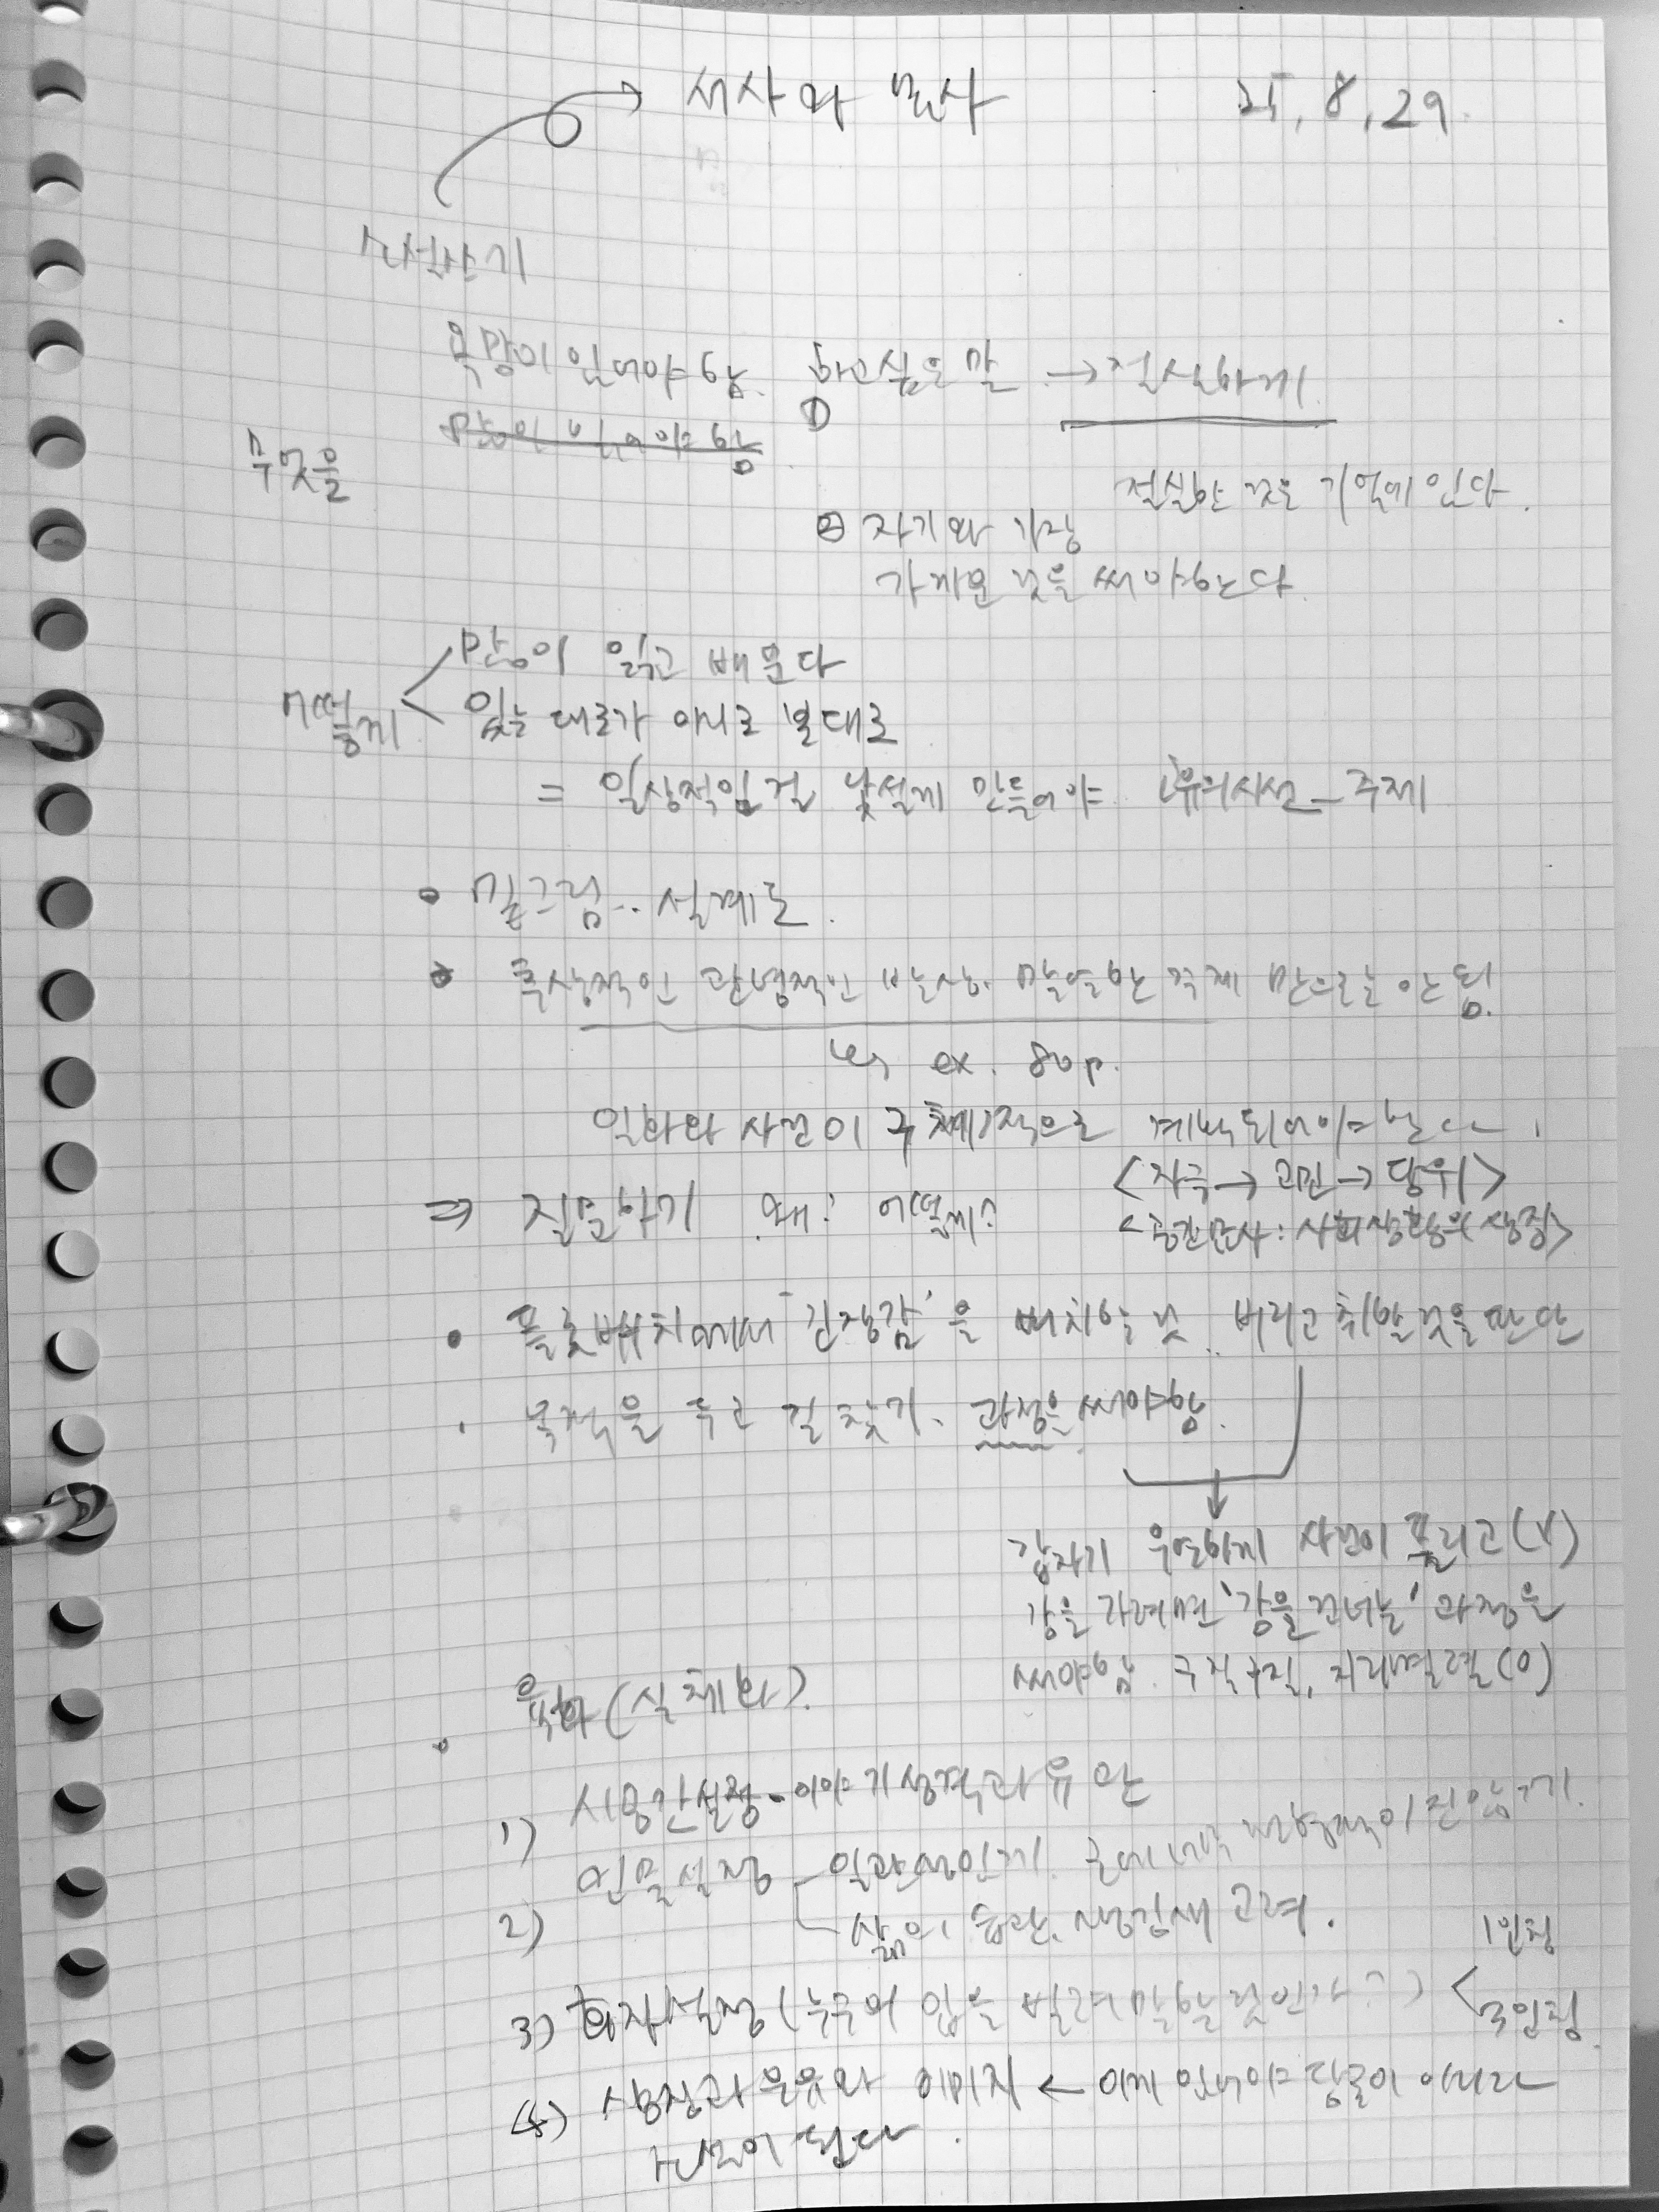 서사와 묘사 25, 8, 29.
소설쓰기
욕망이 있어야 함. 하고싶은 말 → 절실하게
①
무엇을
절실한 것은 기억에 있다.
② 자기와 가장
가까운 것을 써야한다.
많이 읽고 배운다
어떻게
있는 대로가 아니고 본대로
= 일상적인 걸 낯설게 만들어야 시선 - 주제
• 밑그림.. 설계도.
• 추상적인 관념적인 발상. 막연한 주제 만으로는 안 됨.
↳ ex. 80p.
일화와 사건이 구체적으로 계획되어야 한다.
<자극 → 고민 → 행위>
⇒ 질문하기 왜? 어떻게?
<공간묘사 : 사회상황의 상징>
• 플롯배치에서 '긴장감'을 배치할 것.. 버리고 취할 것을 판단
• 목적을 두고 길 찾기. 과정을 써야함.
갑자기 우연하게 사건이 풀리고 (X)
강을 가려면 '강을 건너는' 과정을
써야함. 구질구질, 지리멸렬 (O)
• 육화 (실체화).
1) 시공간설정 - 이야기 성격과 유관
2) 인물설정 - 일관성있게.
삶의 습관, 생김새 고려.
3) 화자설정 (누구의 입을 빌려 말할 것인가?) < 1인칭
3인칭
4) 상징과 은유와 이미지 ← 이게 있어야 이
소설이 된다.